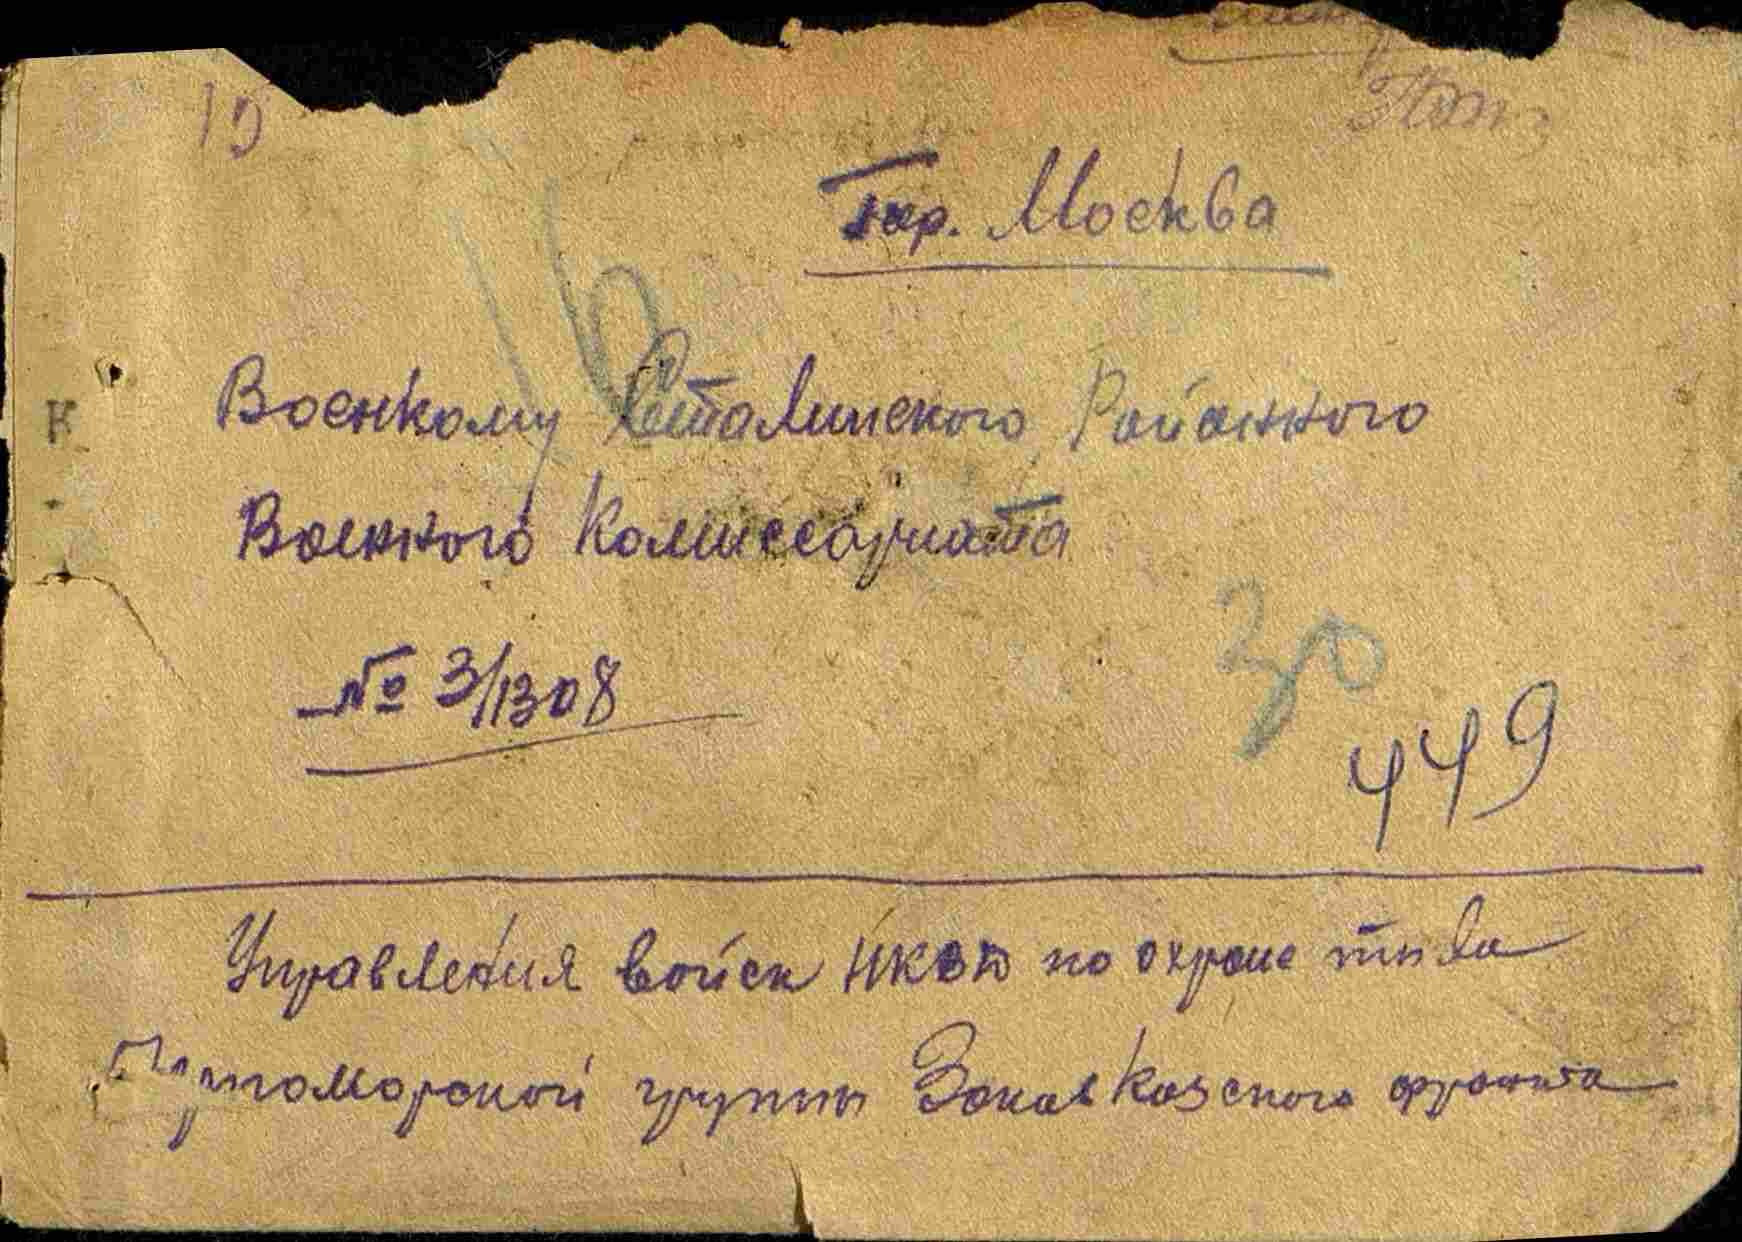 10
гор. Москва
Военкому Сталинского Районного
Военного Комиссариата
№ 3/1308
16
30
449
Управления войск НКВД по охране тыла
Черноморской группы Закавказского фронта